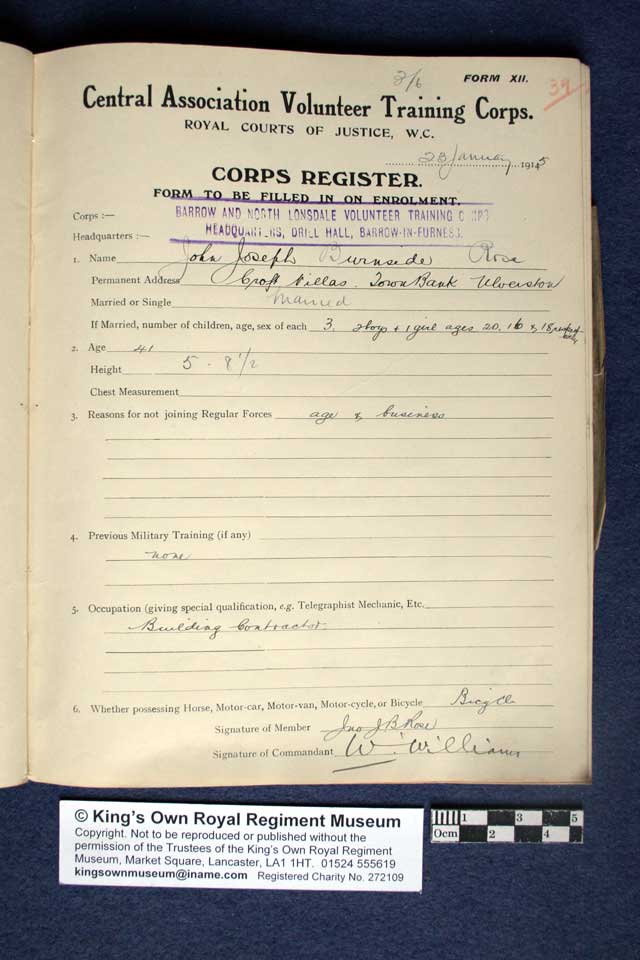 3/6
FORM XII.
39
Central Association Volunteer Training Corps.
ROYAL COURTS OF JUSTICE, W.C.
23 January 1915
CORPS REGISTER.
FORM TO BE FILLED IN ON ENROLMENT.
Corps :— BARROW AND NORTH LONSDALE VOLUNTEER TRAINING CORPS
Headquarters :— HEADQUARTERS, DRILL HALL, BARROW-IN-FURNESS.
1. Name John Joseph Burnside Rose
Permanent Address Croft Villas. Town Bank Ulverston
Married or Single Married
If Married, number of children, age, sex of each 3. 2 boys + 1 girl ages 20, 16 & 18 respectively
2. Age 41
Height 5 - 8 1/2
Chest Measurement
3. Reasons for not joining Regular Forces age & business
4. Previous Military Training (if any)
none
5. Occupation (giving special qualification, e.g. Telegraphist Mechanic, Etc.
Building Contractor.
6. Whether possessing Horse, Motor-car, Motor-van, Motor-cycle, or Bicycle Bicycle
Signature of Member Jno J B Rose
Signature of Commandant W. Williams
© King's Own Royal Regiment Museum
Copyright. Not to be reproduced or published without the
permission of the Trustees of the King's Own Royal Regiment
Museum, Market Square, Lancaster, LA1 1HT. 01524 555619
kingsownmuseum@iname.com Registered Charity No. 272109
1 3 5
0cm 2 4